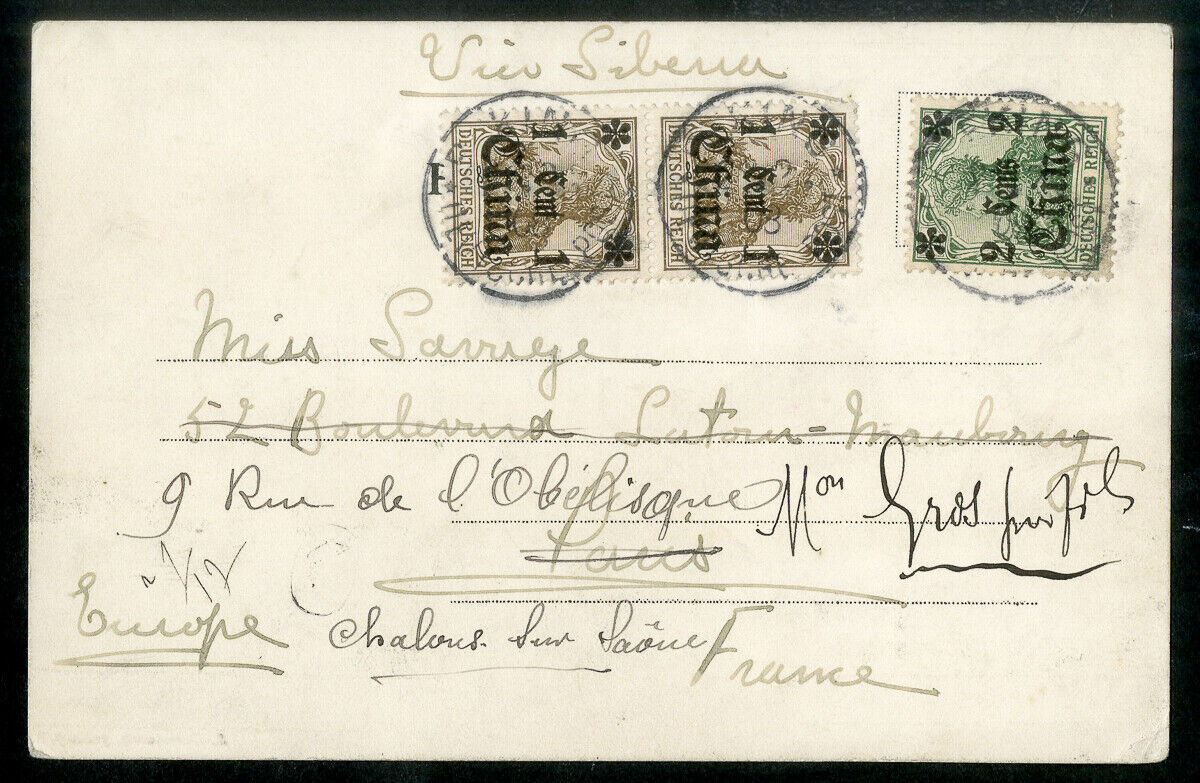 Via Siberia
1 1
China
Cent
DEUTSCHES REICH
1 1
China
Cent
DEUTSCHES REICH
2 2
Cents
China
DEUTSCHES REICH
Miss Savage
52 Boulevard Latour-Maubourg
9 Rue de l'Obélisque Mon Gros
Paris
Europe Chalons sur Saône France